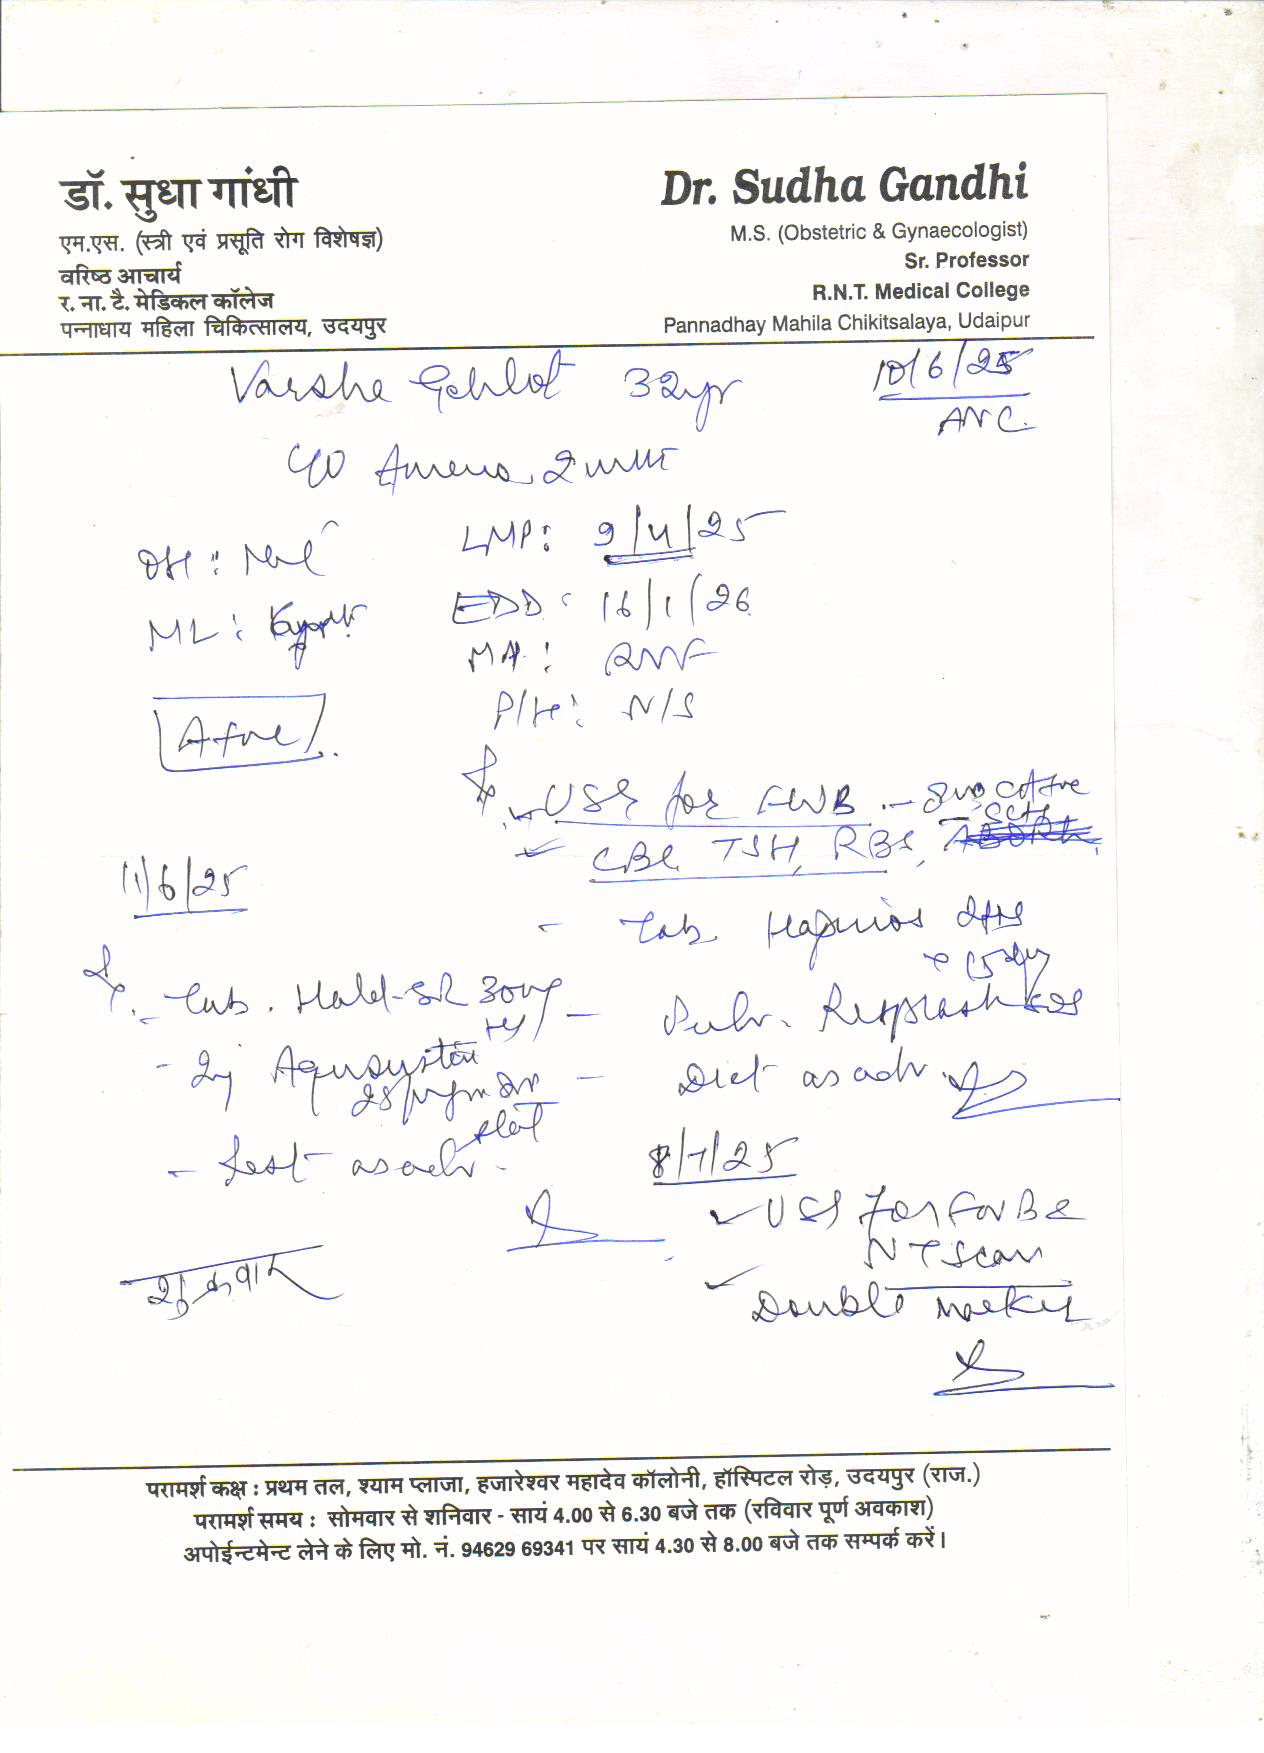 डॉ. सुधा गांधी
एम.एस. (स्त्री एवं प्रसूति रोग विशेषज्ञ)
वरिष्ठ आचार्य
र. ना. टै. मेडिकल कॉलेज
पन्नाधाय महिला चिकित्सालय, उदयपुर
Dr. Sudha Gandhi
M.S. (Obstetric & Gynaecologist)
Sr. Professor
R.N.T. Medical College
Pannadhay Mahila Chikitsalaya, Udaipur
Varsha Gehlot 32yr
10/6/25
ANC.
C/O 2
OH: Nil
ML:
LMP: 9/4/25
EDD: 16/1/26
MH: RMF
P/H: N/S
USG for FWB
CBC, TSH, RBS,
Tab.
x 15 day
Diet as adv.
11/6/25
Tab. Hald-SR 300mg
Inj Aqususten
25 mg
Rest as adv.
शुक्रवार
8/7/25
USG for FWB &
NT Scan
Double marker
परामर्श कक्ष : प्रथम तल, श्याम प्लाजा, हजारेश्वर महादेव कॉलोनी, हॉस्पिटल रोड़, उदयपुर (राज.)
परामर्श समय : सोमवार से शनिवार - सायं 4.00 से 6.30 बजे तक (रविवार पूर्ण अवकाश)
अपोईन्टमेन्ट लेने के लिए मो. नं. 94629 69341 पर सायं 4.30 से 8.00 बजे तक सम्पर्क करें।